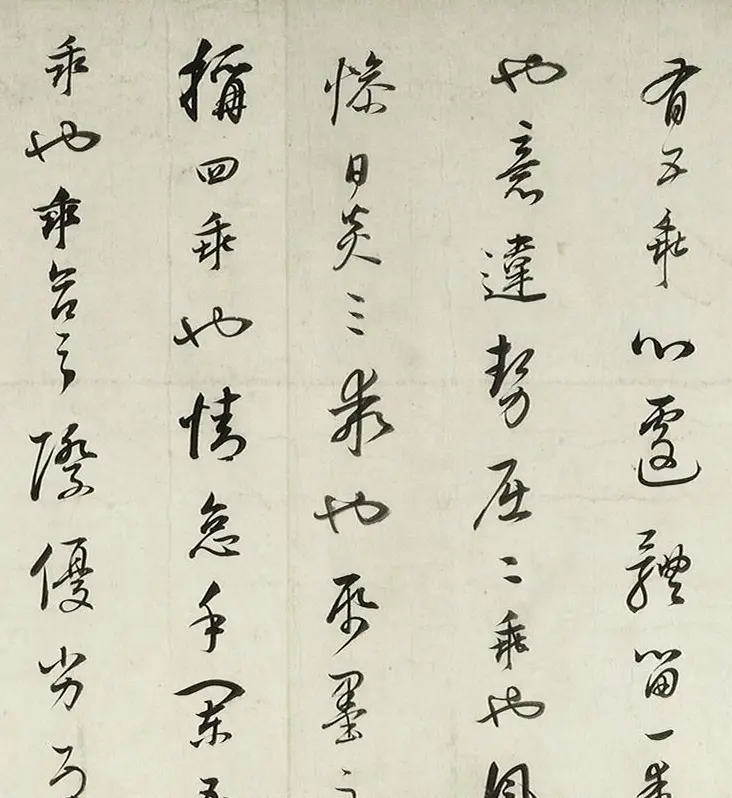 有五乖心遽體留一乖
也意違勢屈二乖也風
燥日炎三乖也帋墨不
稱四乖也情怠手闌五
乖也乖合之際優劣互